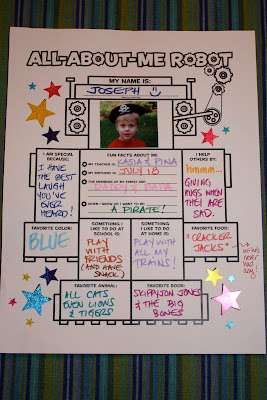 ALL-ABOUT-ME ROBOT
MY NAME IS:
JOSEPH
I AM SPECIAL
BECAUSE:
I HAVE
THE BEST
LAUGH
YOU'VE
EVER
HEARD!
FUN FACTS ABOUT ME
MY TEACHER IS KASIA & PINA
MY BIRTHDAY IS JULY 18
THE MEMBERS OF MY FAMILY ARE
DADDY & BABA
WHEN I GROW UP I WANT TO
BE A PIRATE!
I HELP
OTHERS BY:
hmmm...
GIVING
HUGS WHEN
THEY ARE
SAD.
FAVORITE COLOR:
BLUE
SOMETHING
I LIKE TO DO AT
SCHOOL IS:
PLAY
WITH
FRIENDS
(AND HAVE
SNACK)
SOMETHING
I LIKE TO DO
AT HOME IS:
PLAY WITH
ALL MY
TRAINS!
FAVORITE FOOD:
"CRACKER
JACKS"
he's
never
had
any!
FAVORITE ANIMAL:
ALL CATS
EVEN LIONS
& TIGERS
FAVORITE BOOK:
SKIPPYJON JONES
& THE BIG
BONES